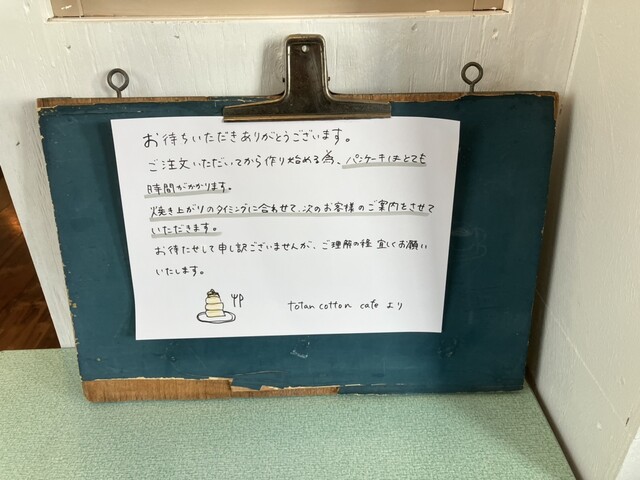 お待ちいただきありがとうございます。
ご注文いただいてから作り始める為、パンケーキはとても
時間がかかります。
焼き上がりのタイミングに合わせて、次のお客様のご案内をさせて
いただきます。
お待たせして申し訳ございませんが、ご理解の程 宜しくお願い
いたします。
totan cotton cafe より